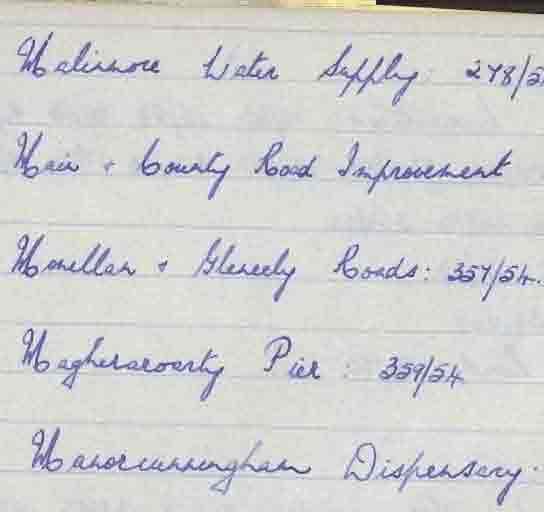 Malinmore Water Supply: 278/5
Main + County Road Improvement
Monellan + Gleneely Roads: 357/54.
Magheraroarty Pier: 359/54
Manorcunningham Dispensary.